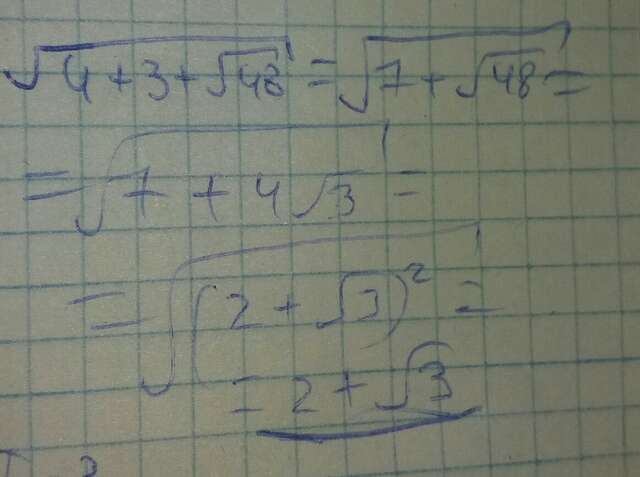 √(4+3+√48) = √(7+√48) =
= √(7+4√3) =
= √((2+√3)²) =
= 2+√3